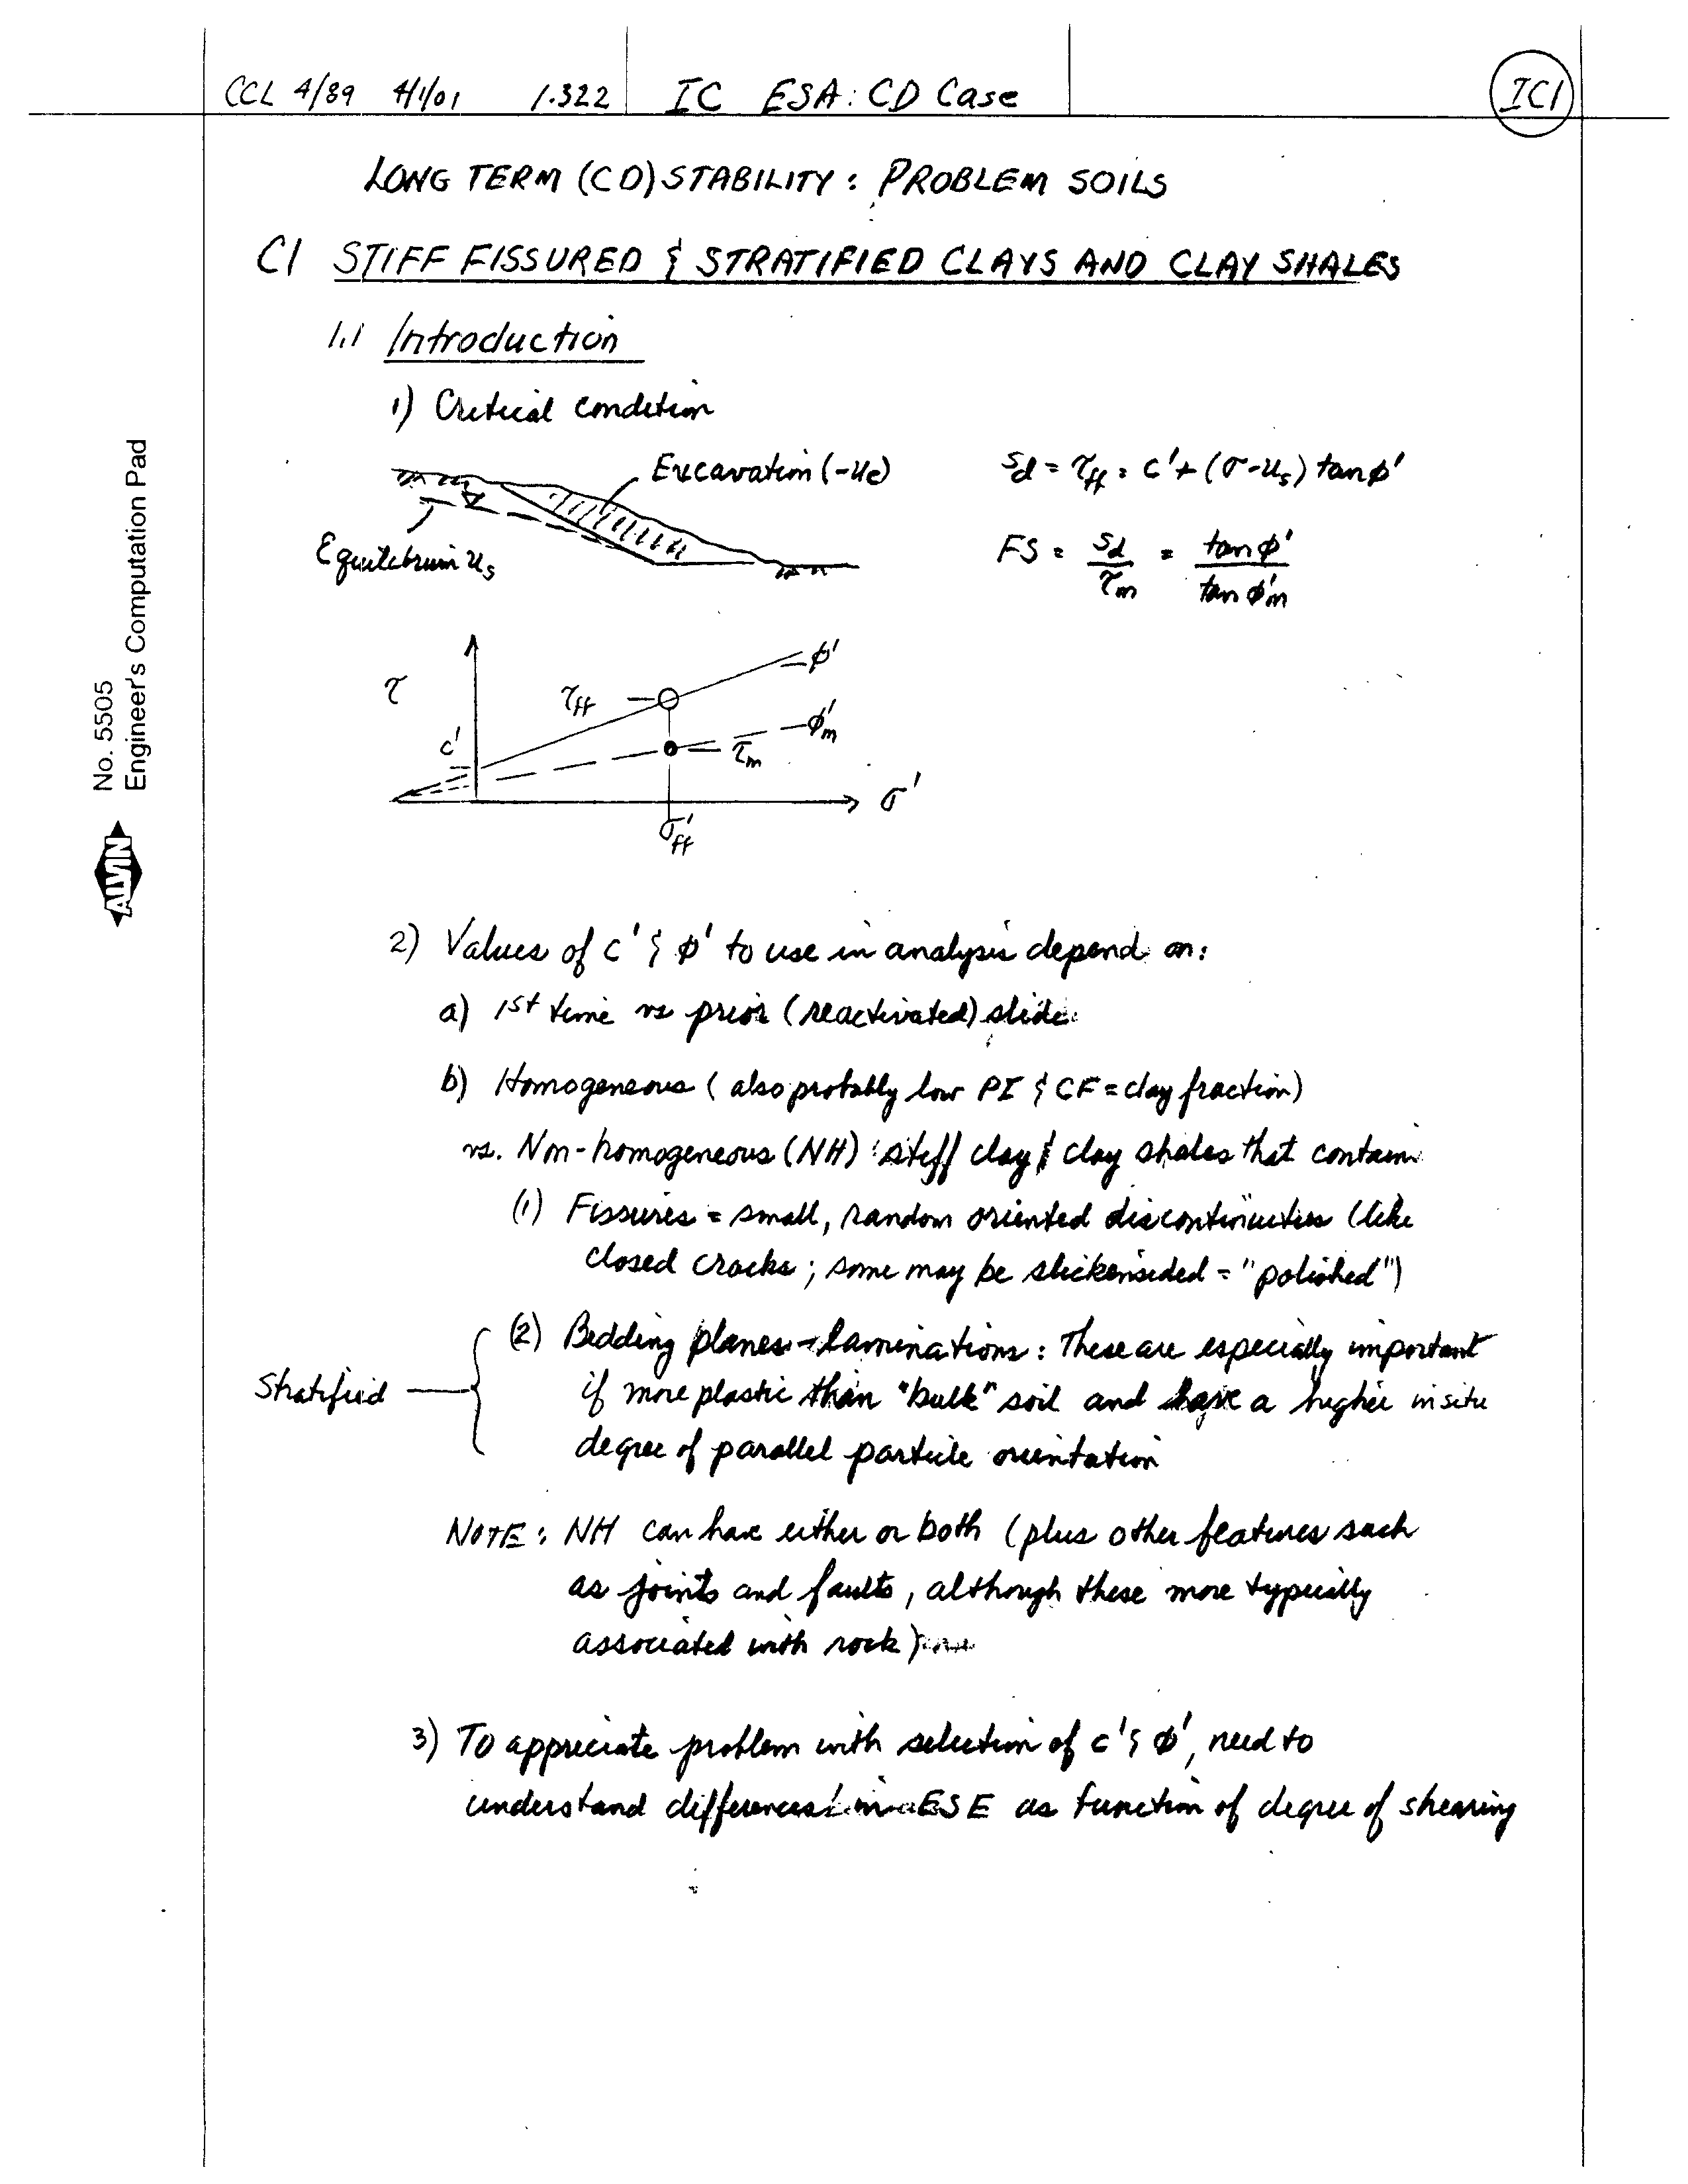 CCL 4/89 4/1/01 1.322 IC ESA: CD Case IC1
LONG TERM (CD) STABILITY: PROBLEM SOILS
C1 STIFF FISSURED & STRATIFIED CLAYS AND CLAY SHALES
1.1 Introduction
1) Critical condition
Excavation (-ue)
Equilibrium us
sd = τff = c' + (σ-us) tanφ'
FS = sd/τm = tanφ'/tanφ'm
τ
τff
φ'
φ'm
τm
c'
σ'
σ'ff
2) Values of c' & φ' to use in analysis depend on:
a) 1st time vs prior (reactivated) slide
b) Homogeneous (also probably low PI & CF = clay fraction)
vs. Non-homogeneous (NH): stiff clay & clay shales that contain
(1) Fissures = small, random oriented discontinuities (like
closed cracks; some may be slickensided = "polished")
Stratified
(2) Bedding planes - laminations: These are especially important
if more plastic than "bulk" soil and have a higher in situ
degree of parallel particle orientation
NOTE: NH can have either or both (plus other features such
as joints and faults, although these more typically
associated with rock)
3) To appreciate problem with selection of c' & φ', need to
understand differences in ESE as function of degree of shearing
No. 5505
Engineer's Computation Pad
ALVIN